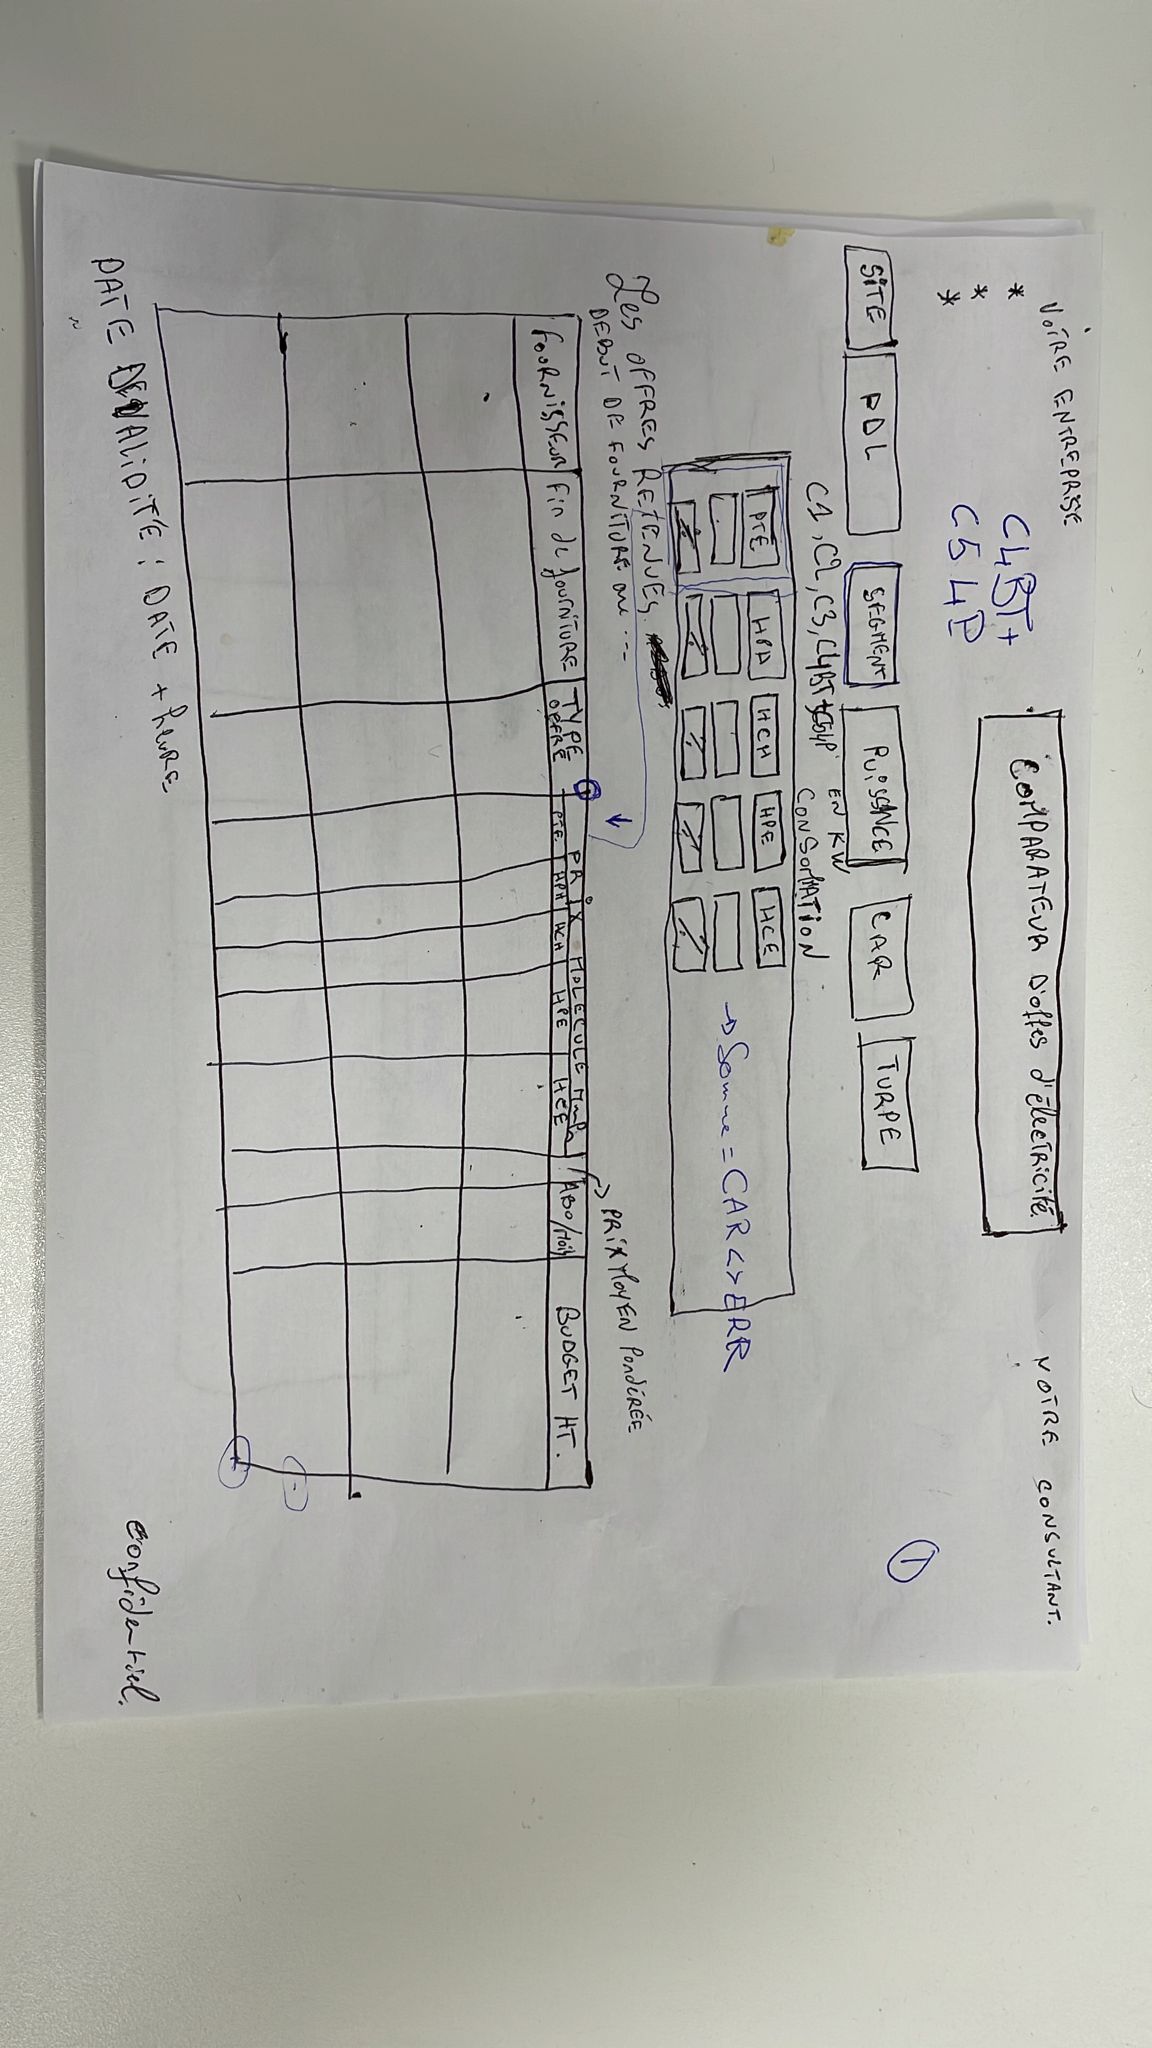 VOTRE ENTREPRISE
*
*
*
C4BT+
C5 4P
COMPARATEUR D'offes d'électricité.
NOTRE CONSULTANT.
1
SITE
PDL
SEGMENT
PUISSNCE
CAR
TURPE
EN KW
C1, C2, C3, C4BT+
CONSOMMATION
PTE HPH HCH HPE HCE
→ Somme = CAR <> ERR
Les OFFRES RETENUES
DEBUT DE FOURNITURE au ...
PRIX MOYEN PONDÉRÉE
FOURNISSEUR
Fin de fourniture
TYPE OFFRE
PRIX MOLECULE
PTE HPH HCH HPE HCE
ABO/Mois
BUDGET HT.
DATE DE VALIDITÉ : DATE + heure
confidentiel.